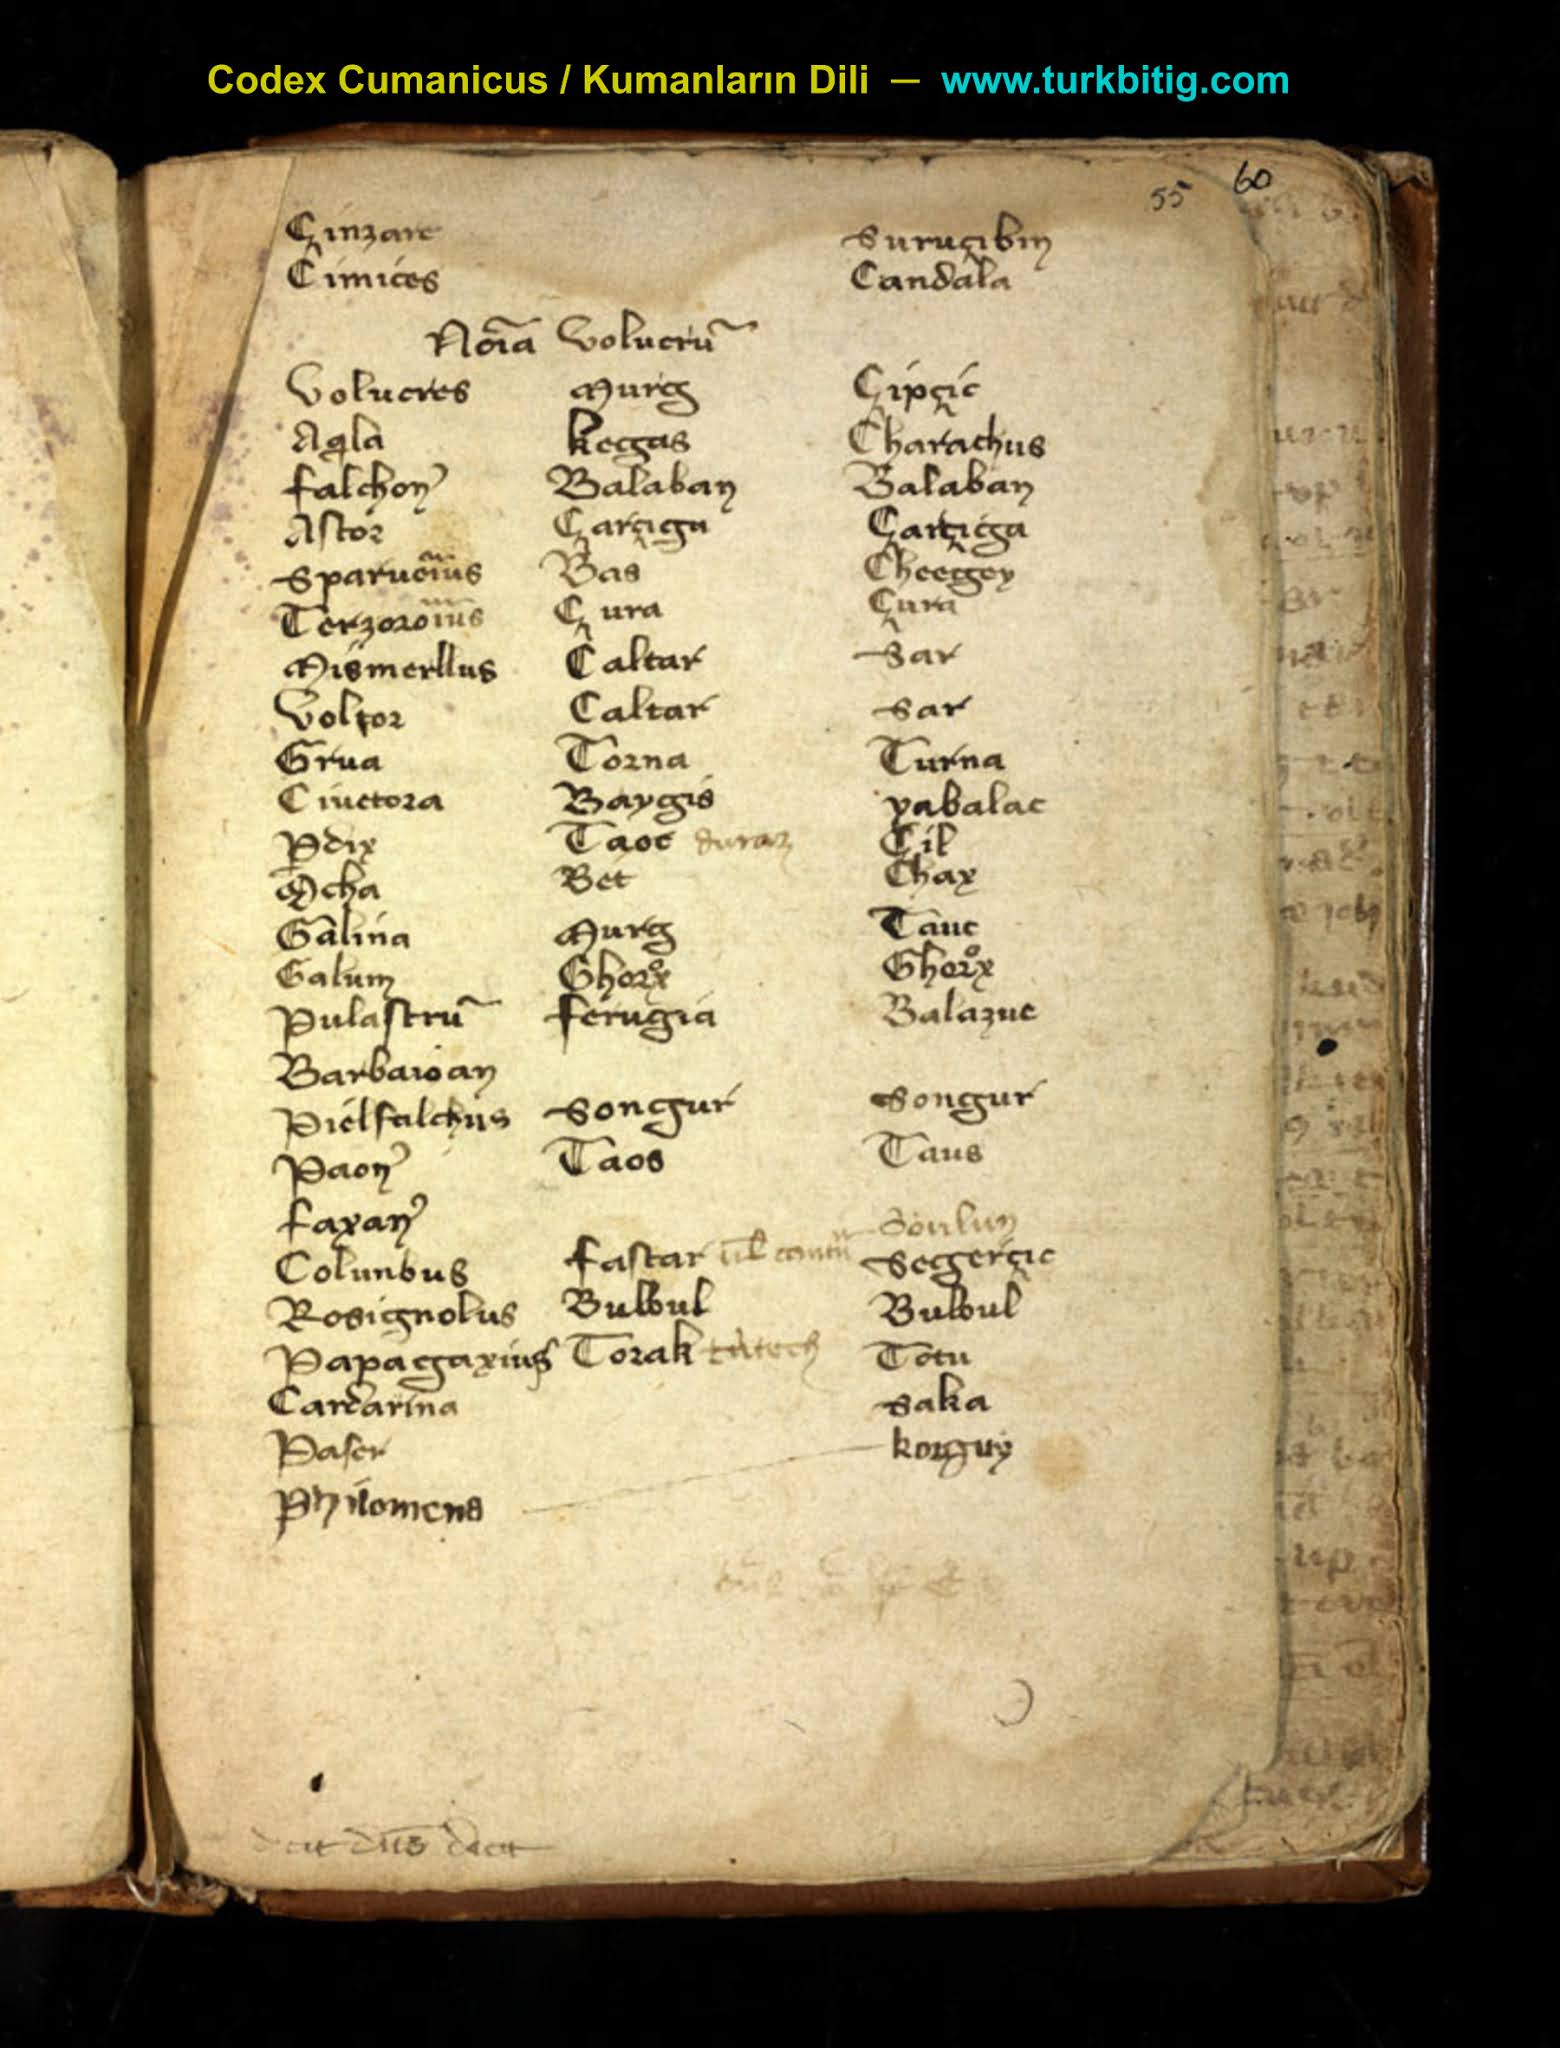 Codex Cumanicus / Kumanların Dili — www.turkbitig.com
55 60
Çinzare Suruçibin
Cimices Candala
Noīa Volucrū
Volucres Murg Çipçic
Aqla kecgas Charachus
falchon Balaban Balaban
Astor Çarçigu Çarçiga
Sparuerius Bas Checgey
Terzorolus Çura Çura
Mismerllus Caltar Sar
Voltor Caltar Sar
Grua Torna Turna
Ciuetora Baygis yabalac
Pdix Taoc duraz Cil
Ocha Bet Chax
Galina Murg Tauc
Galum Ghorox Ghorox
Pulastrū ferugia Balazuc
Barbaioan
Pielfalchus Songur Songur
Paon Taos Taus
faxan Soulun
Colunbus fastar Segerçic
Rosignolus Bulbul Bulbul
Papagaxius Torak tutech Totu
Carderina Saka
Paser korguy
Philomena